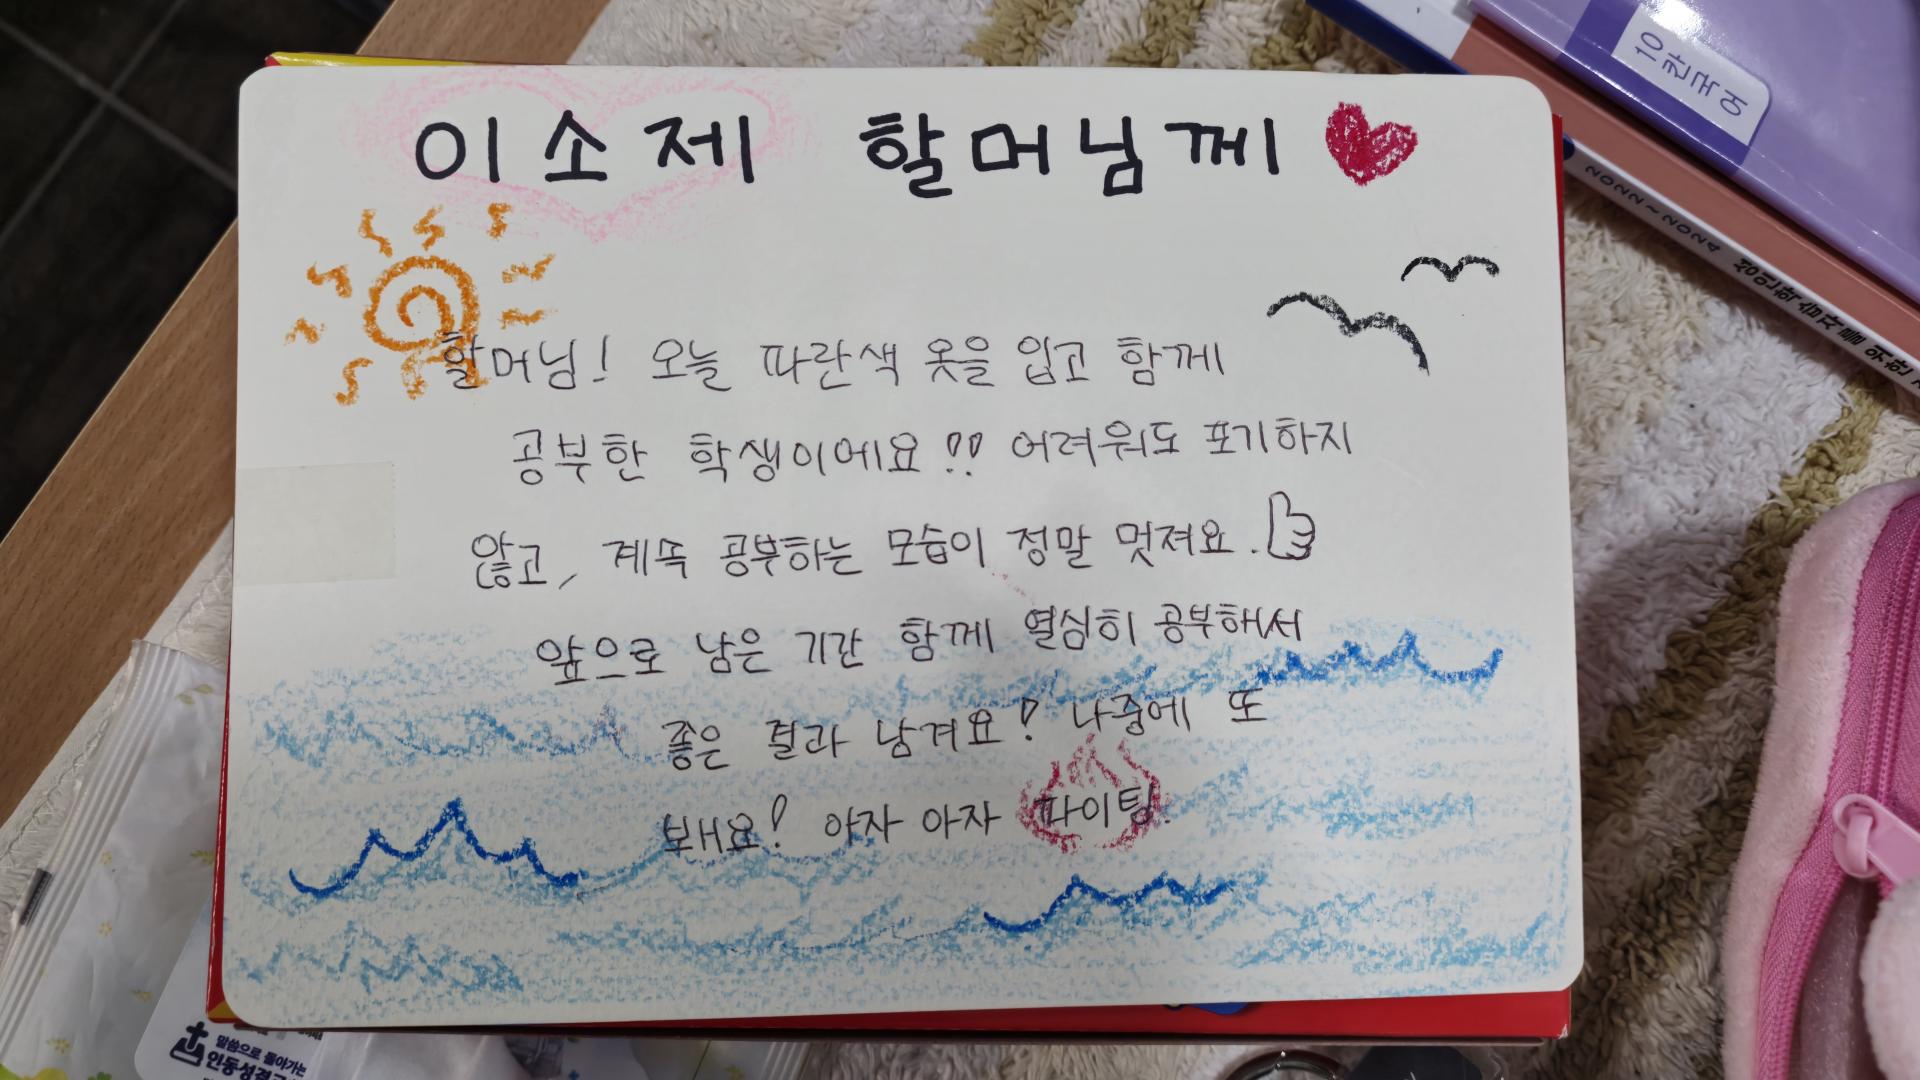 이소제 할머님께
할머님! 오늘 파란색 옷을 입고 함께
공부한 학생이에요!! 어려워도 포기하지
않고, 계속 공부하는 모습이 정말 멋져요.
앞으로 남은 기간 함께 열심히 공부해서
좋은 결과 남겨요! 나중에 또
봬요! 아자 아자 파이팅.
10 한국어
2022~2024 성인학습자를 위한
말씀으로 돌아가는
인동성결